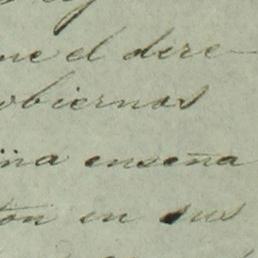 ue el dere-
obiernos
ña enseña
tón en sus